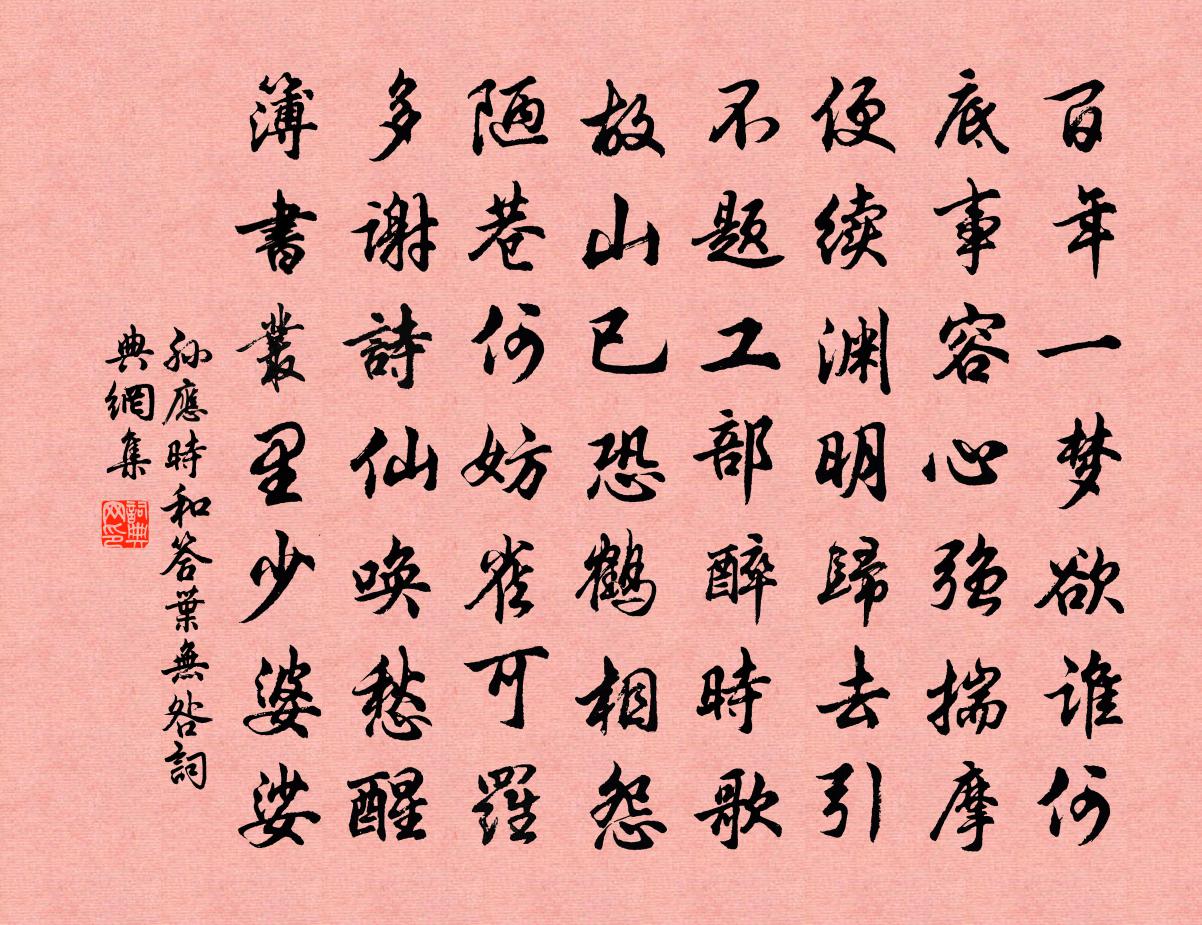 百年一梦欲谁何
底事容心强揣摩
便续渊明归去引
不题工部醉時歌
故山已恐鶴相怨
陋巷何妨雀可羅
多謝詩仙唤愁醒
簿書叢里少婆娑
孙應時和答葉無咎詞
典網集
詞典
网印